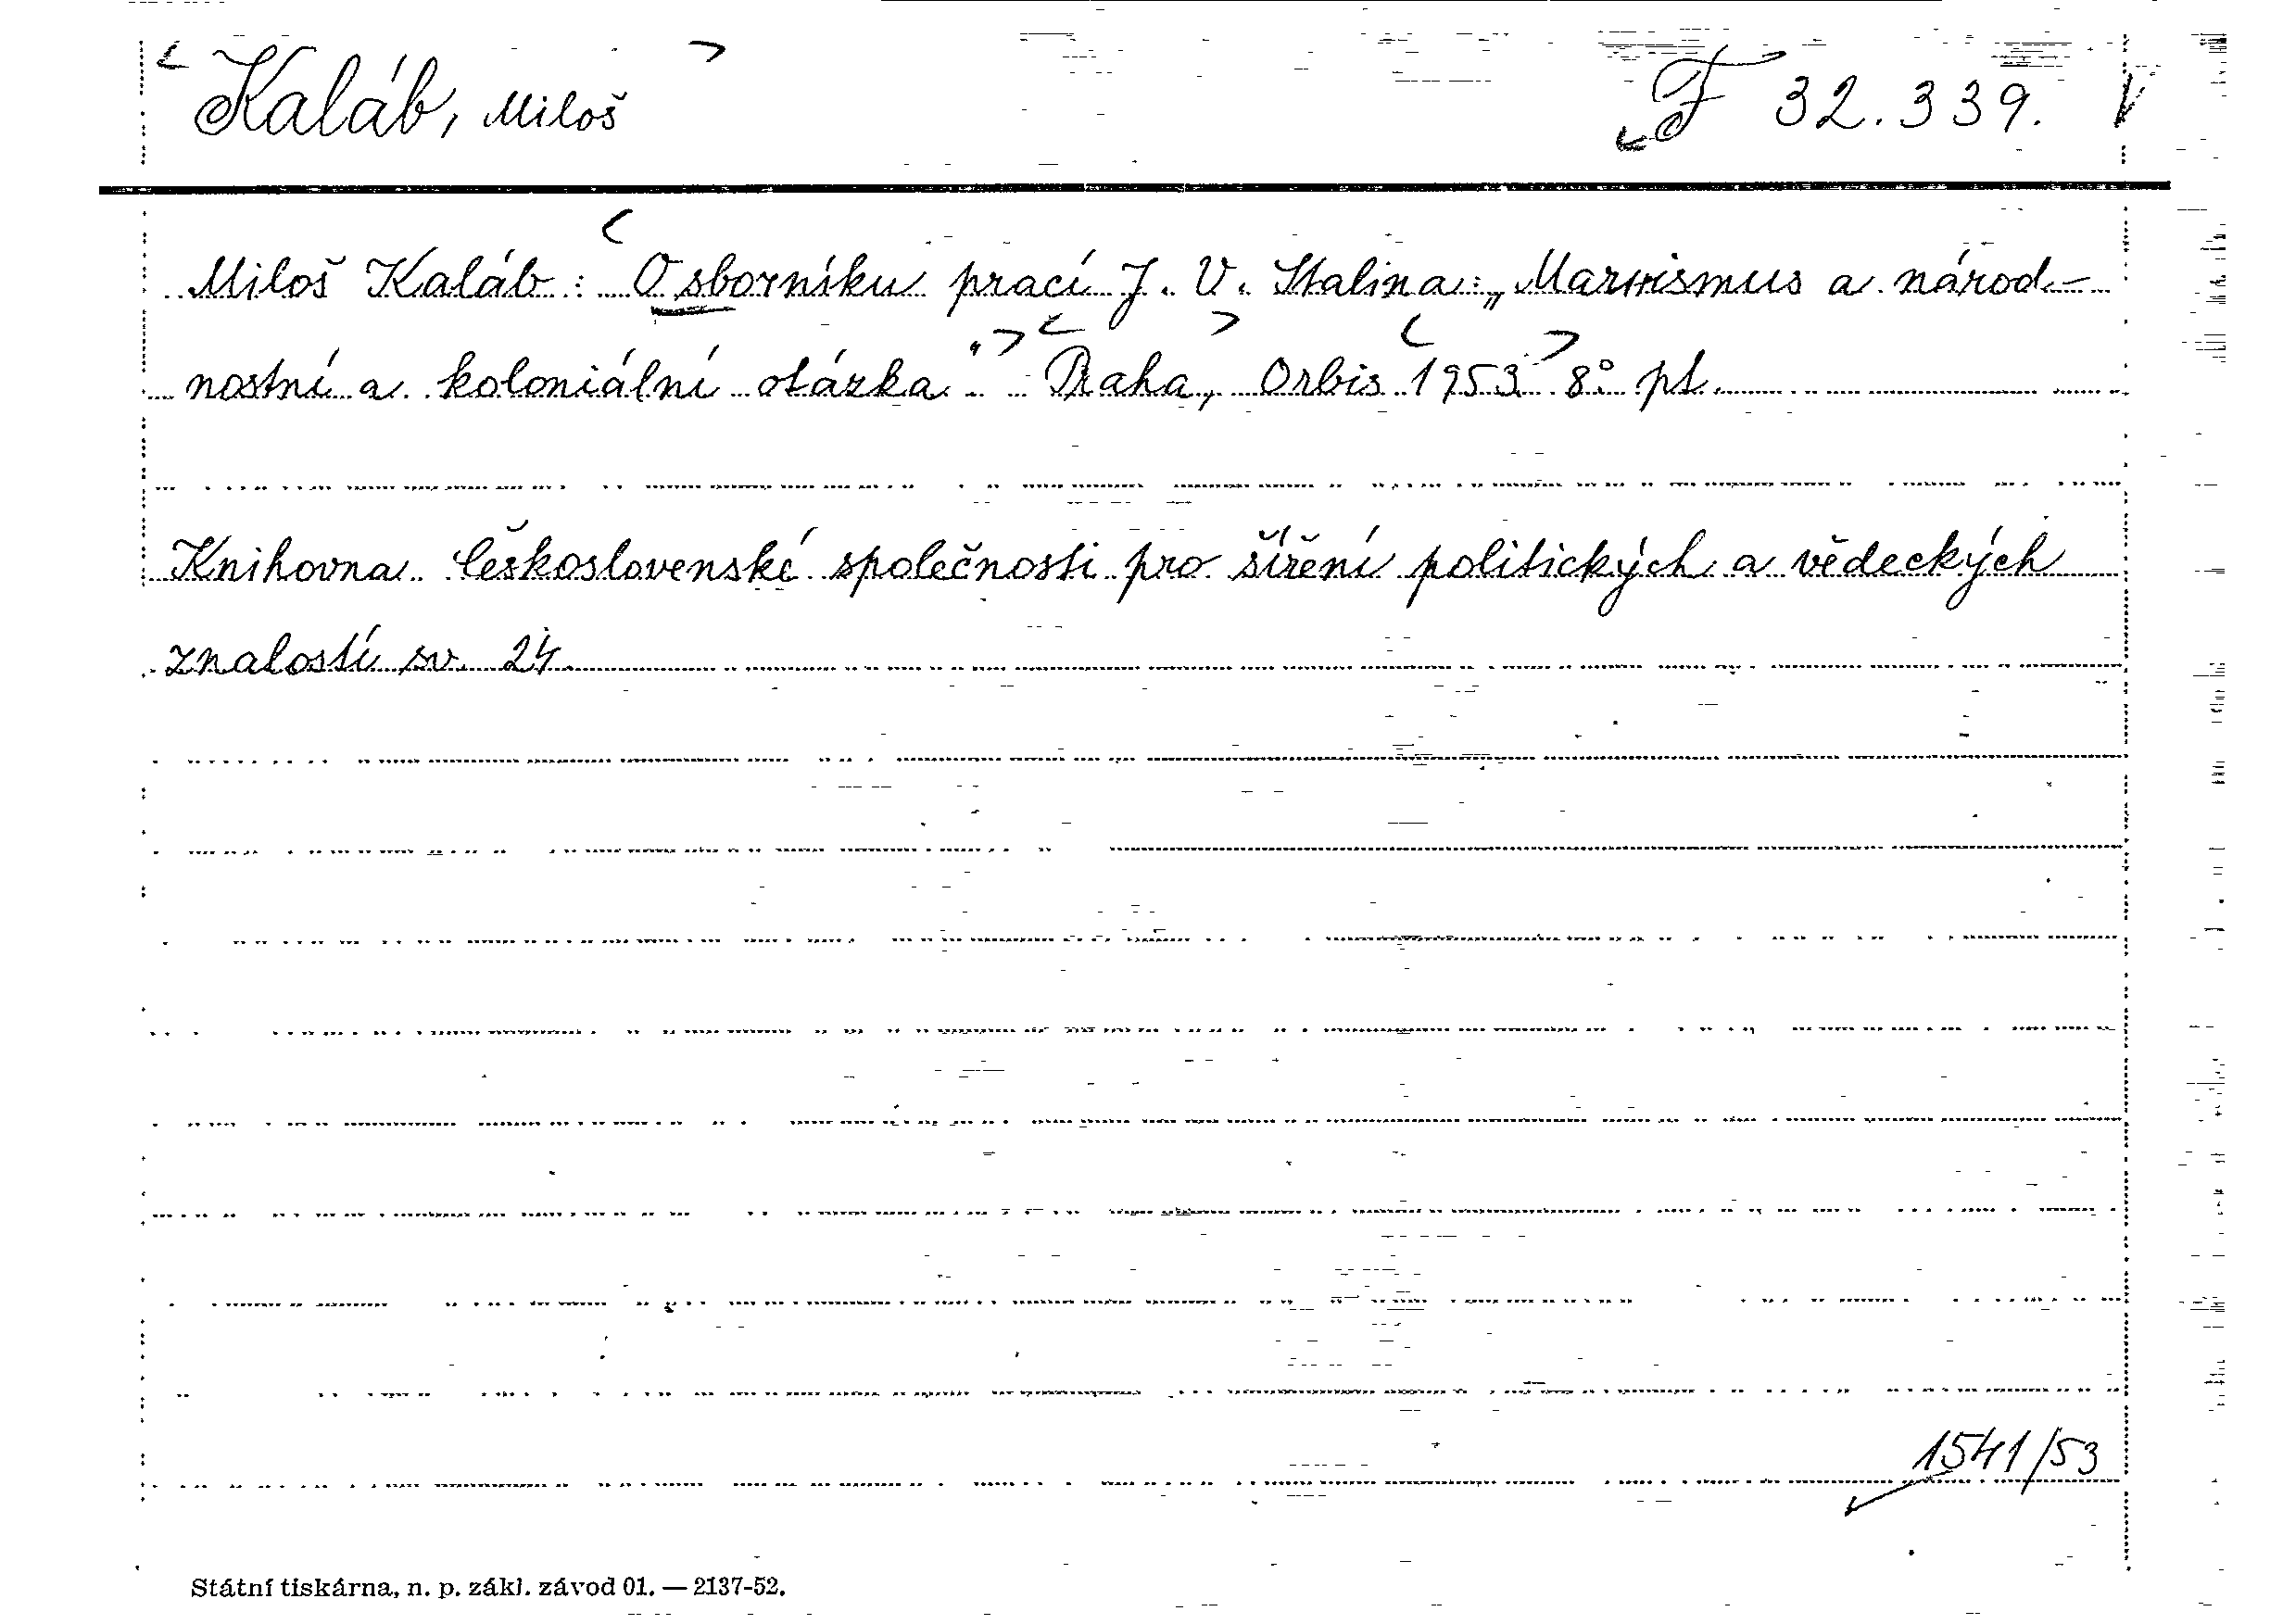 Kaláb, Miloš F 32.339. V
Miloš Kaláb: O sborníku prací J. V. Stalina: „Marxismus a národ-
nostní a koloniální otázka." Praha, Orbis 1953 8° pt.
Knihovna Československé společnosti pro šíření politických a vědeckých
znalostí sv. 24.
1541/53
Státní tiskárna, n. p. zákl. závod 01. — 2137-52.